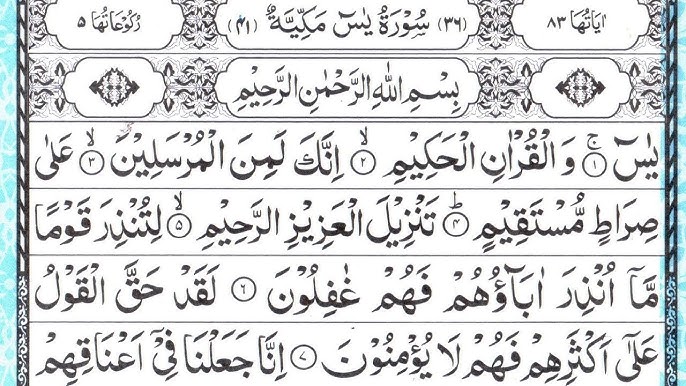 اٰيَاتُهَا ٨٣ (٣٦) سُوْرَةُ يٰسٓ مَكِّيَّةٌ (٤١) رُكُوْعَاتُهَا ٥
بِسْمِ اللّٰهِ الرَّحْمٰنِ الرَّحِيْمِ
يٰسٓ ۚ﴿۱﴾ وَ الْقُرْاٰنِ الْحَكِيْمِ ۙ﴿۲﴾ اِنَّكَ لَمِنَ الْمُرْسَلِيْنَ ۙ﴿۳﴾ عَلٰى
صِرَاطٍ مُّسْتَقِيْمٍ ؕ﴿۴﴾ تَنْزِيْلَ الْعَزِيْزِ الرَّحِيْمِ ۙ﴿۵﴾ لِتُنْذِرَ قَوْمًا
مَّاۤ اُنْذِرَ اٰبَآؤُهُمْ فَهُمْ غٰفِلُوْنَ ﴿۶﴾ لَقَدْ حَقَّ الْقَوْلُ
عَلٰۤى اَكْثَرِهِمْ فَهُمْ لَا يُؤْمِنُوْنَ ﴿۷﴾ اِنَّا جَعَلْنَا فِيْۤ اَعْنَاقِهِمْ